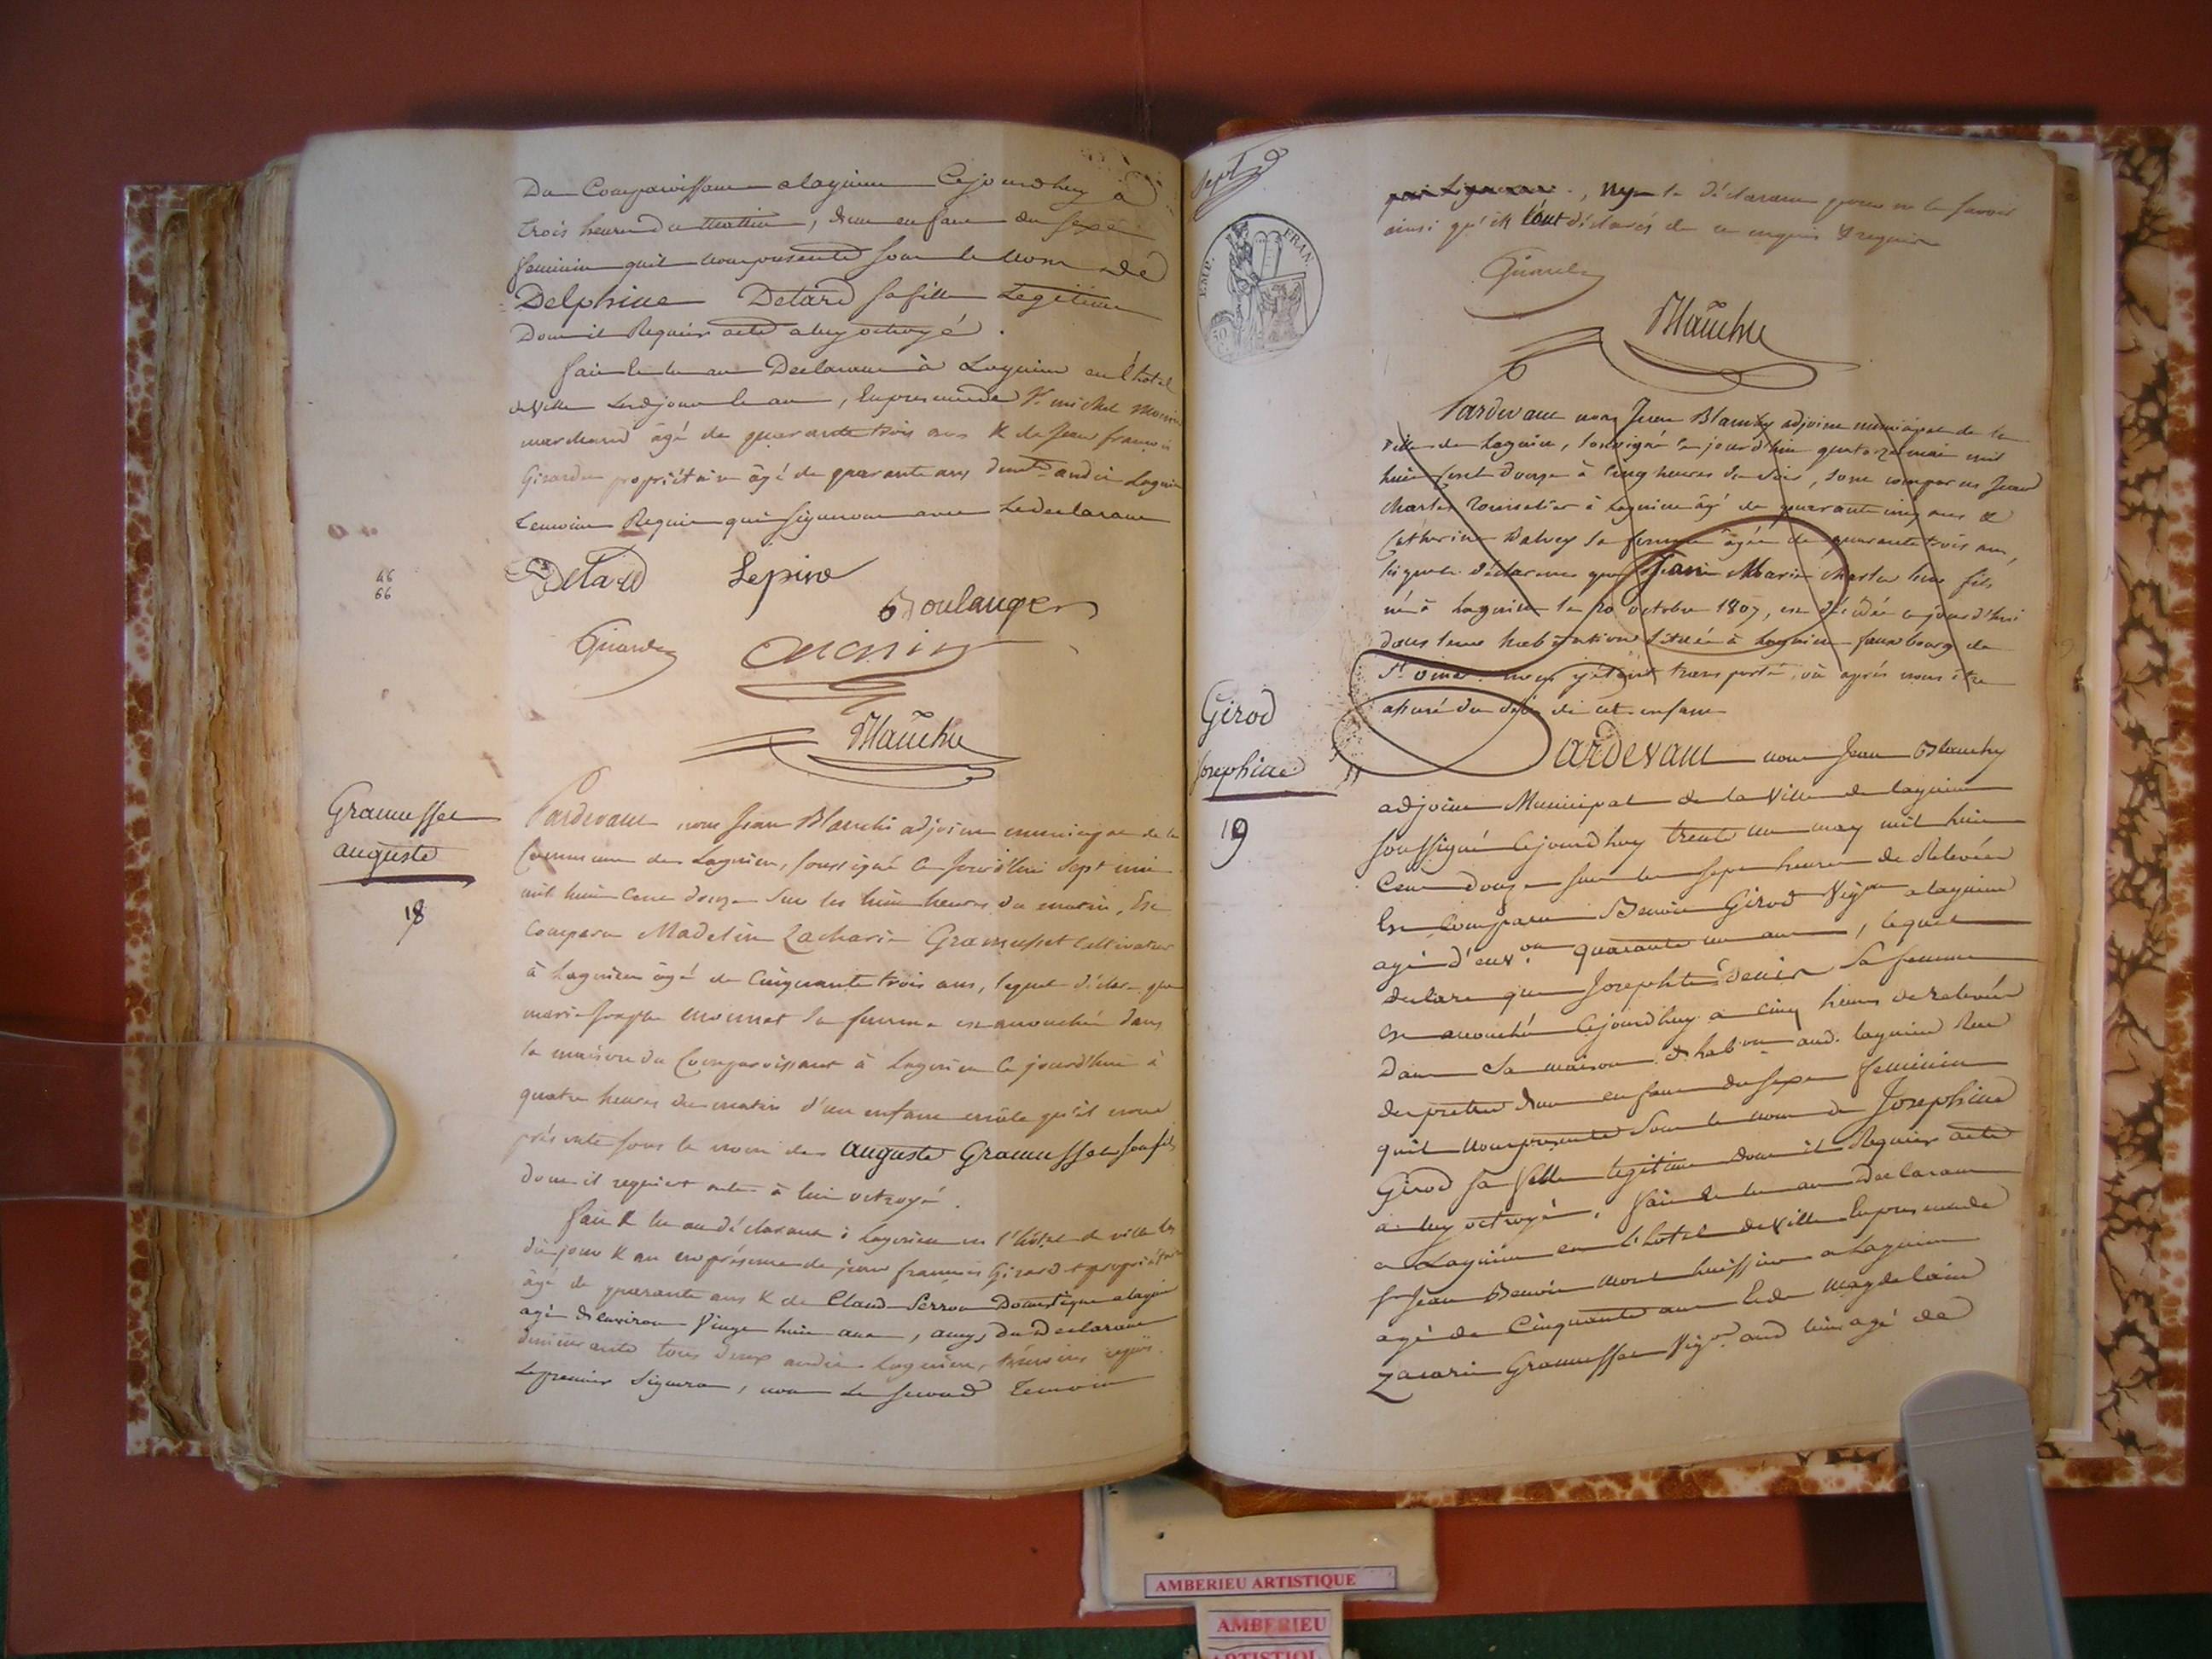 Du Comparoissant a lagnieu Cejourdhuy à
trois heures du matin, d'un enfant du sexe
feminin quil nous présente sous le nom dé
Delphine Detard sa fille Legitime
Dont il Requier acte a luy octroyé.
fait et lu au Declarant à Lagnieu en l'hotel
de Ville lesd jour et an, En présence de Sr michel
marchand âgé de quarante trois ans & de Jean françois
Girardu propriétaire âgé de quarante ans demts audit Lagnieu
temoins Requis qui signeront avec Le declarant
Detard Lepine
Boulanger
Girardu
Blanchy
46
66
Gramusset
auguste
18
Pardevant nous Jean Blanchi adjoint municipal de la
Commune de Lagnieu, soussigné Ce Jourd'hui sept mai
mil huit cent douze sur les huit heures du matin, Est
Comparu Madelin Zacharie Gramusset Cultivateur
à Lagnieu âgé de Cinquante trois ans, lequel déclare que
marie Josephe monnet sa femme est accouchée dans
la maison du Comparoissant à Lagnieu Ce jourd'hui à
quatre heures du matin d'un enfant mâle qu'il nous
présente sous le nom de auguste Gramusset son fils
dont il requiert acte à lui octroyé.
fait & lu au déclarant à Lagnieu en l'hôtel de ville les
dit jour & an en présence de jean françois Girard propriétaire
âgé de quarante ans & de Claude Perron Domestique a lagnieu
agé d'environ vingt huit ans, amys du Declarant
demeurants tous deux audit Lagnieu, témoins requis.
Le premier signera, non Le second temoin
Sept
EMP. FRAN.
, ny le déclarant pour ne le savoir
ainsi qu'ils l'ont déclarés de ce enquis & requis
Girardu
Blanchy
Pardevant nous Jean Blanchy adjoint municipal de la
ville de Lagnieu, soussigné ce jourd'hui quatorze mai mil
huit cent douze à cinq heures du soir, sont comparus Jean
Charles à Lagnieu âgé de quarante cinq ans &
Catherine sa femme âgée de quarante trois ans,
lesquels déclarent que Jean Marie leur fils
né à Lagnieu le 20 octobre 1807, est décédé ce jourd'hui
dans leur habitation située à Lagnieu fauxbourg de
St nous y étant transporté, où après nous être
assuré du décès de cet enfant
Girod
Josephine
19
Pardevant nous Jean Blanchy
adjoint Municipal de la Ville de lagnieu
soussigné Cejourdhuy trente un may mil huit
Cent douze sur les sept heures de Relevée
Est Comparu Benoit Girod Vigon a lagnieu
agé d'envon quarante un ans, lequel
declare que Josephte Denis sa femme
est accouchée Cejourdhuy a cinq heures de relevée
Dans sa maison d'habon aud. lagnieu Rue
des pretres d'un enfant du sexe feminin
quil nous présente sous le nom de Josephine
Girod sa fille legitime dont il Requier acte
a luy octroyé, fait et lu au Declarant
a Lagnieu en l'hotel de Ville En présence de
sr Jean Benoit mont huissier a Lagnieu
agé de Cinquante ans et de Magdelain
Zacarie Gramusset Vigon aud lieu agé de
AMBERIEU ARTISTIQUE
AMBERIEU